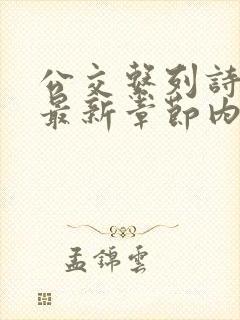 公交繫列詩
最新章節內
孟錦雲